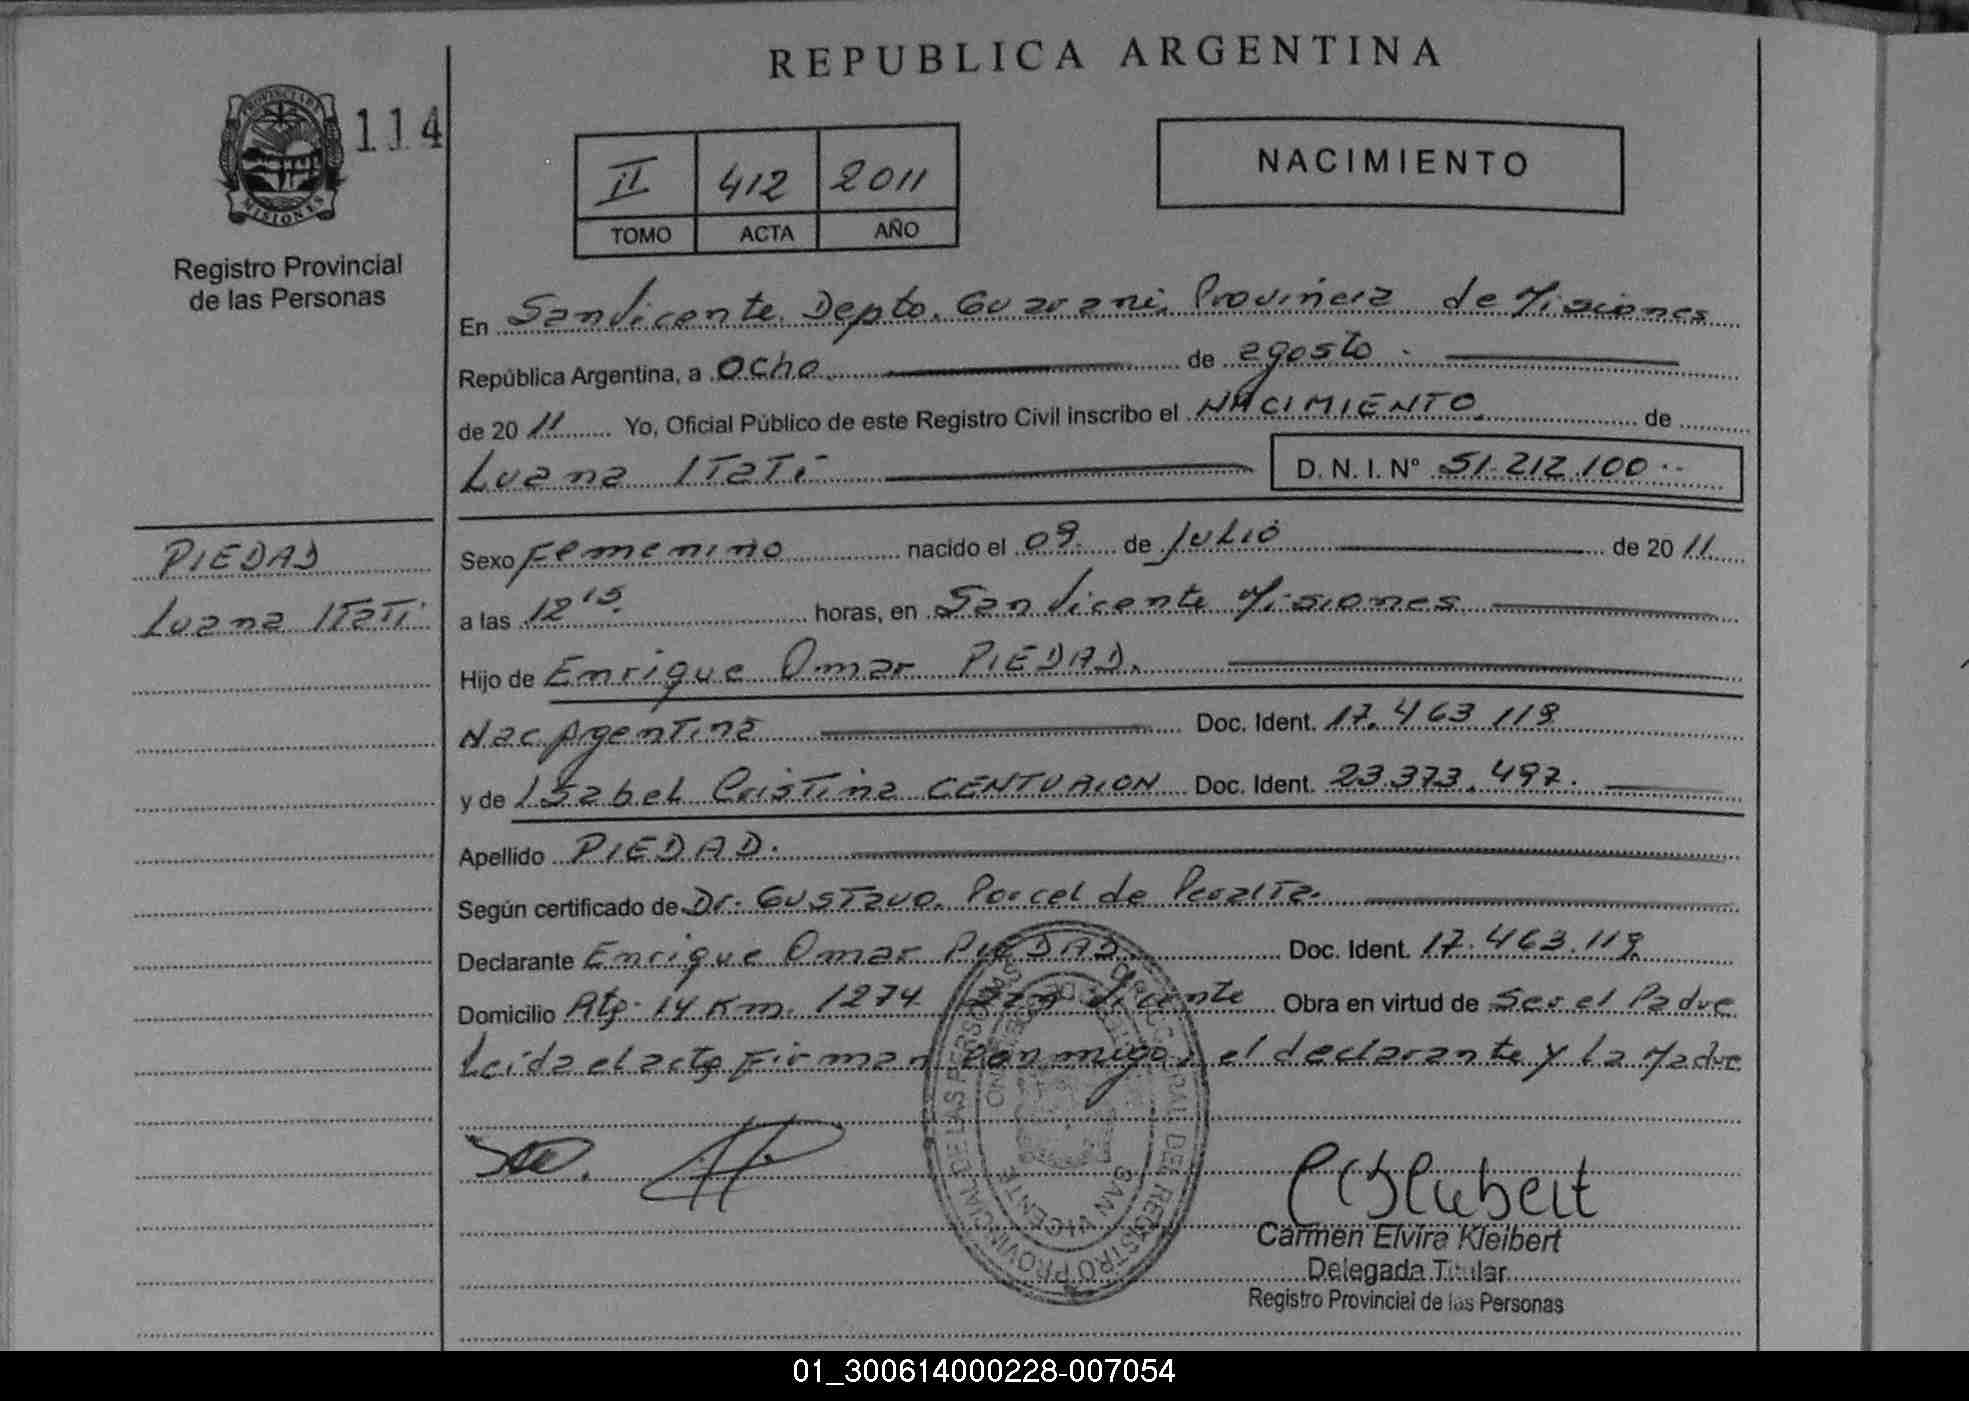 REPUBLICA ARGENTINA
PROVINCIA DE
MISIONES
114
Registro Provincial
de las Personas
II 412 2011
TOMO ACTA AÑO
NACIMIENTO
En San Vicente. Depto. Guarani. Provincia de Misiones
República Argentina, a Ocho de agosto.
de 20 11 Yo, Oficial Público de este Registro Civil inscribo el NACIMIENTO. de
Luana ITaTi D. N. I. N° 51.212.100
PIEDAD
Luana ITaTi
Sexo Femenino nacido el 09. de Julio de 20 11
a las 12 15. horas, en San Vicente Misiones
Hijo de Enrique Omar PIEDAD.
Nac. Argentina Doc. Ident. 17.463.119
y de Isabel Cristina CENTURION Doc. Ident. 23.373.497.
Apellido PIEDAD.
Según certificado de Dr. Gustavo. Porcel de Peralta.
Declarante Enrique Omar PIEDAD. Doc. Ident. 17.463.119
Domicilio 14 Km. 1274 San Vicente Obra en virtud de Ser el Padre
Leida el acta Firman conmigo, el declarante y la Madre
REGISTRO PROVINCIAL DE LAS PERSONAS
SAN VICENTE
Carmen Elvira Kleibert
Delegada Titular
Registro Provincial de las Personas
01_300614000228-007054